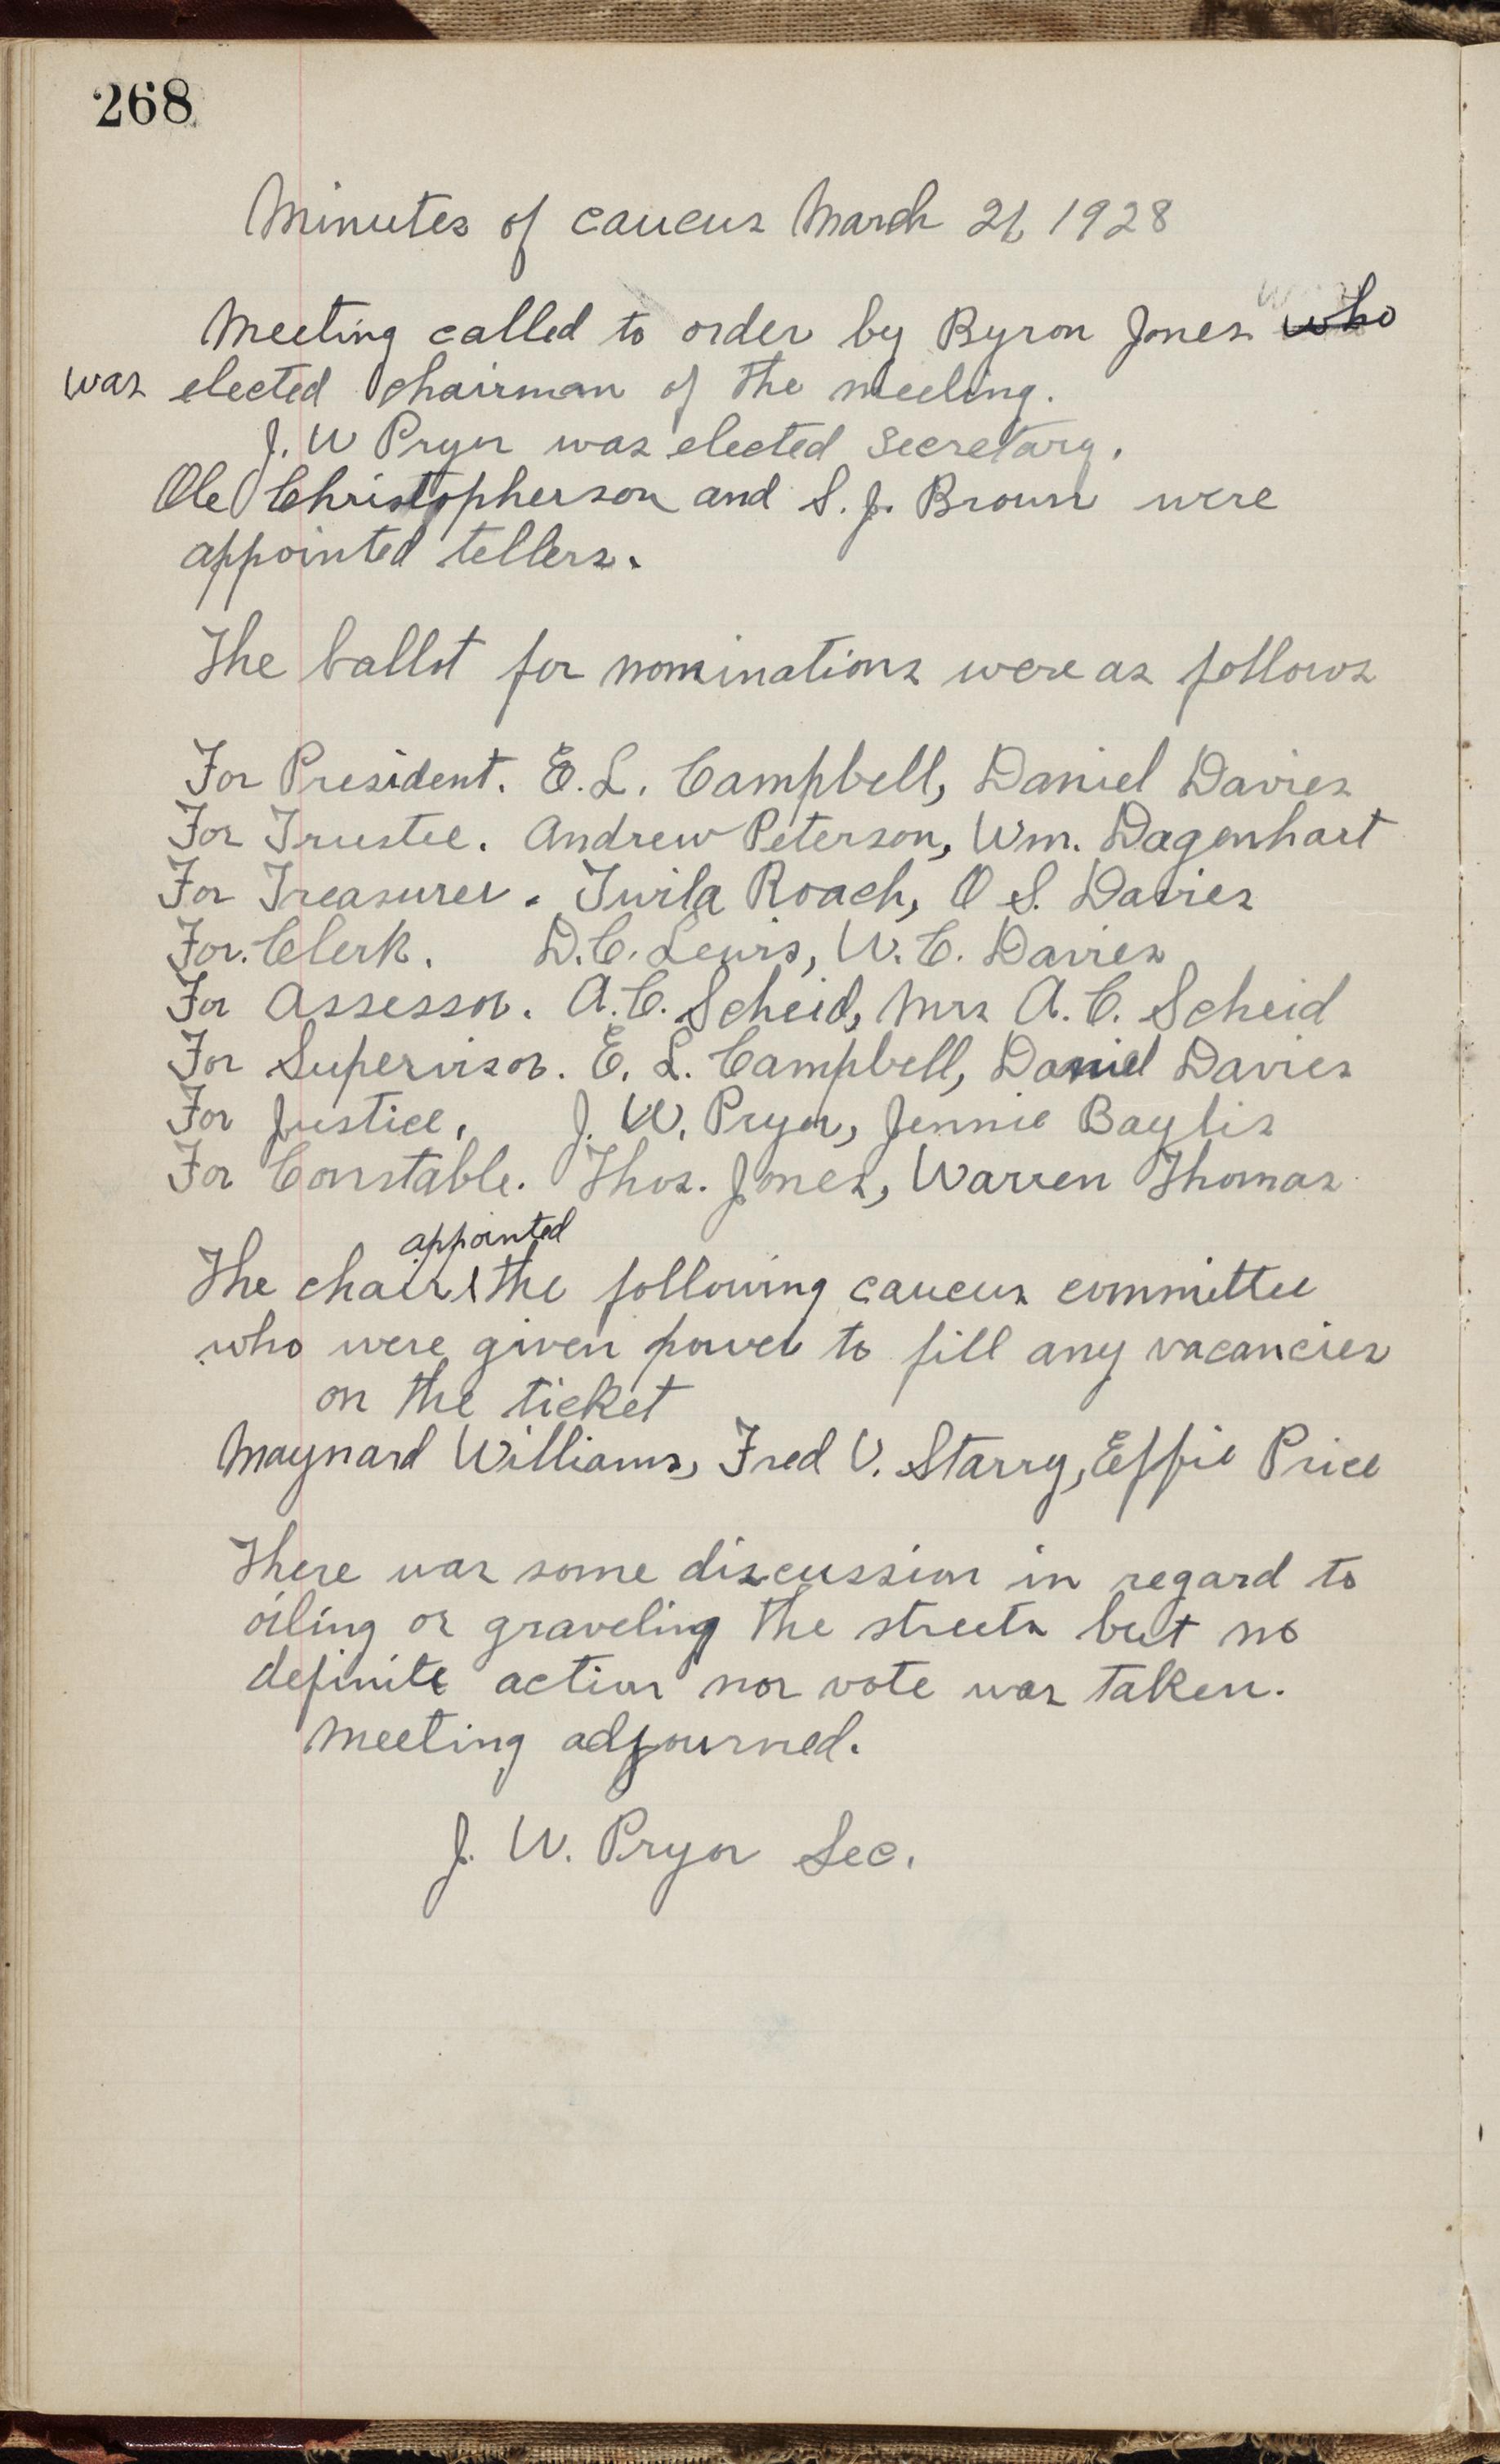 268
Minutes of caucus March 21, 1928
Meeting called to order by Byron Jones who
was elected chairman of the meeting.
J. W Pryor was elected secretary.
Ole Christopherson and S. J. Brown were
appointed tellers.
The ballot for nominations were as follows
For President. E. L. Campbell, Daniel Davies
For Trustee. Andrew Peterson, Wm. Dagenhart
For Treasurer. Twila Roach, O S. Davies
For. Clerk. D. C. Lewis, W. C. Davies
For Assessor. A. C. Scheid, Mrs A. C. Scheid
For Supervisor. E. L. Campbell, Daniel Davies
For Justice. J. W. Pryor, Jennie Baylis
For Constable. Thos. Jones, Warren Thomas
appointed
The chair the following caucus committee
who were given power to fill any vacancies
on the ticket
Maynard Williams, Fred V. Starry, Effie Price
There was some discussion in regard to
oiling or graveling the streets but no
definite action nor vote was taken.
Meeting adjourned.
J. W. Pryor Sec.